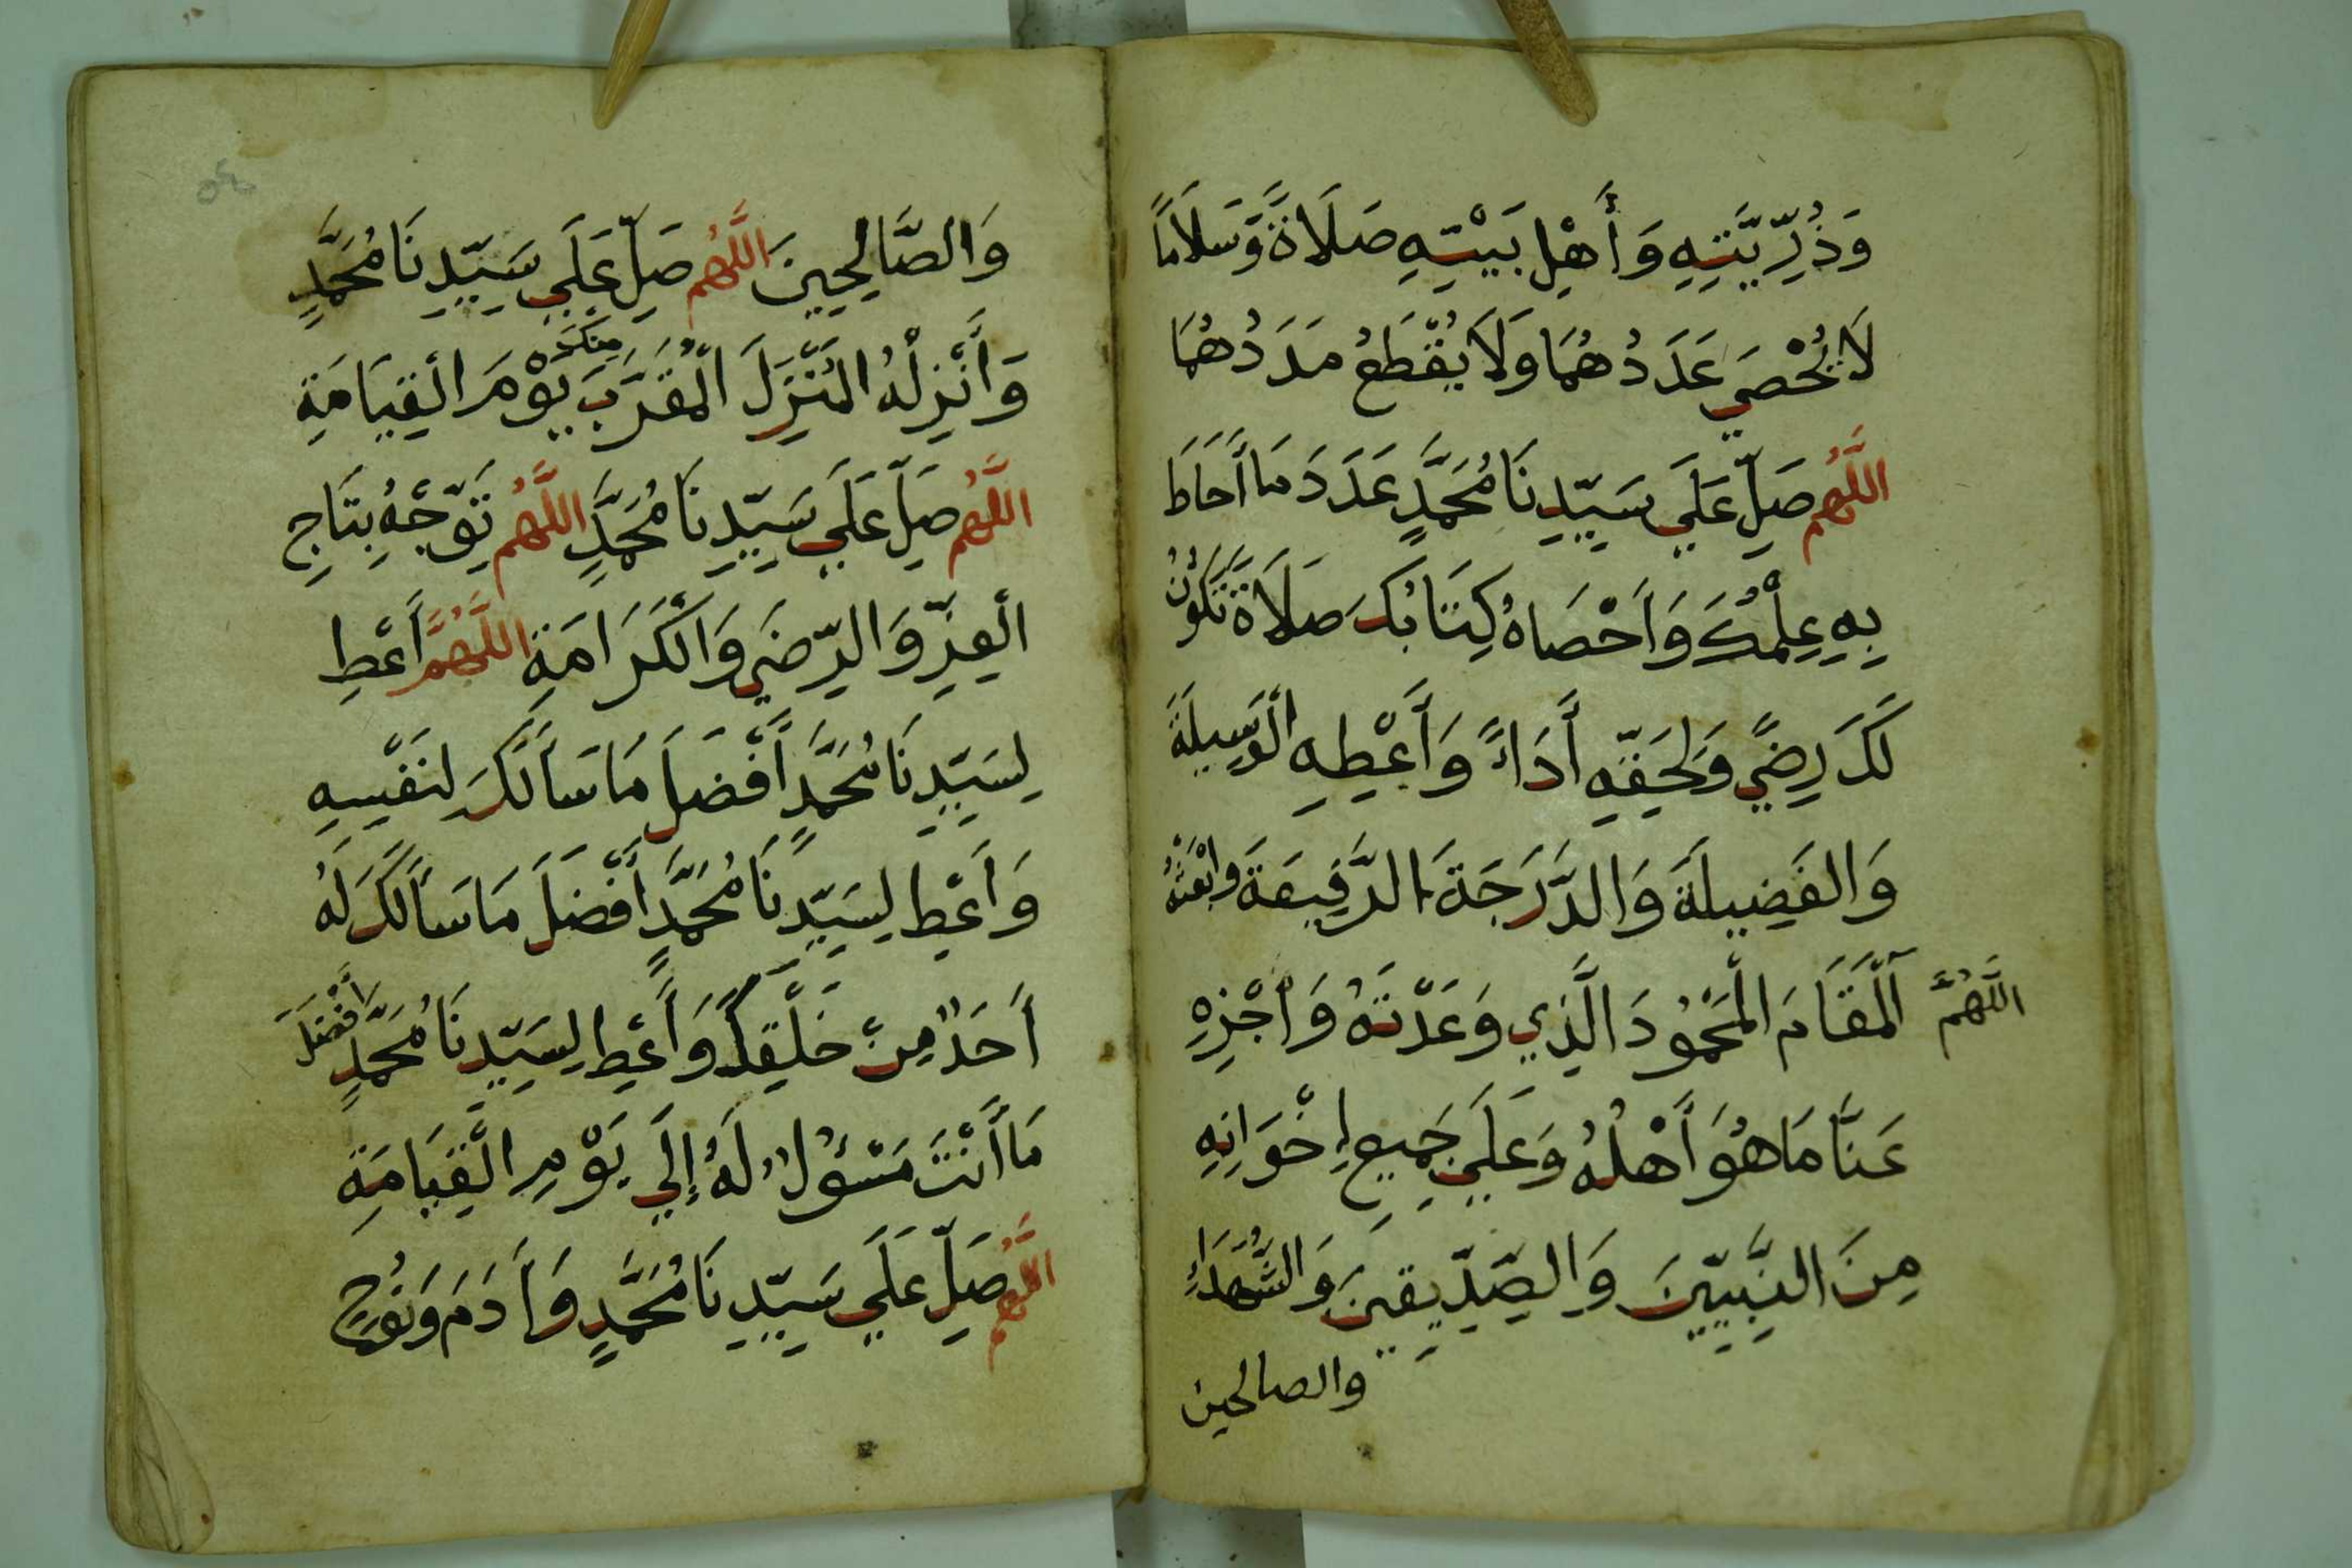 وَذُرِّيَّتِهِ وَأَهْلِ بَيْتِهِ صَلَاةً وَّسَلَامًا
لَا يُحْصَي عَدَدُهُمَا وَلَا يُقْطَعُ مَدَدُهُمَا
اللَّهُم صَلِّ عَلَي سَيِّدِنَا مُحَمَّدٍ عَدَدَ مَا أَحَاطَ
بِهِ عِلْمُكَ وَأَحْصَاهُ كِتَابُكَ صَلَاةً تَكُوْنُ
لَكَ رِضًي وَلِحَقِّهِ أَدَاءً وَأَعْطِهِ الْوَسِيلَةَ
وَالفَضِيلَةَ وَالدَّرَجَةَ الرَّفِيعَةَ وابْعَثْهُ
اللَّهُمَّ الْمَقَامَ الْمَحْمُودَ الَّذِي وَعَدْتَهُ وَاجْزِهِ
عَنَّا مَا هُوَ أَهْلُهُ وَعَلَي جَمِيعِ اِخْوَانِهِ
مِنَ النَّبِيِّينَ وَالصِّدِّيقِينَ وَالشُّهَدَاءِ
والصالحين
٥٤
وَالصَّالِحِينَ اللَّهُم صَلِّ عَلَي سَيِّدِنَا مُحَمَّدٍ
وَأَنْزِلْهُ الْمُنْزَلَ الْمُقَرَّبَ مِنْكَ يَوْمَ الْقِيَامَةِ
اللَّهُم صَلِّ عَلَي سَيِّدِنَا مُحَمَّدٍ اللَّهُم تَوِّجْهُ بِتَاجِ
الْعِزِّ وَالرِّضَي وَالْكَرَامَةِ اللَّهُمَّ أَعْطِ
لِسَيِّدِنَا مُحَمَّدٍ أَفْضَلَ مَا سَأَلَكَ لِنَفْسِهِ
وَأَعْطِ لِسَيِّدِنَا مُحَمَّدٍ أَفْضَلَ مَا سَأَلَكَ لَهُ
أَحَدٌ مِنْ خَلْقِكَ وَأَعْطِ لِسَيِّدِنَا مُحَمَّدٍ أَفْضَلَ
مَا أَنْتَ مَسْئُولٌ لَهُ إِلَي يَوْمِ الْقِيَامَةِ
اللَّهُم صَلِّ عَلَي سَيِّدِنَا مُحَمَّدٍ وَأَدَمَ وَنُوحٍ